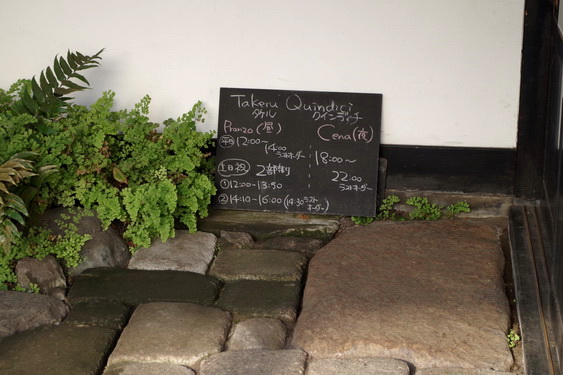 Takeru Quindici
タケル クインディチ
Pranzo(昼)
平日 12:00~
14:00ラストオーダー
土日祝 2部制
①12:00-13:50
②14:10-16:00(14:30ラストオーダー)
Cena(夜)
18:00~
22:00
ラストオーダー